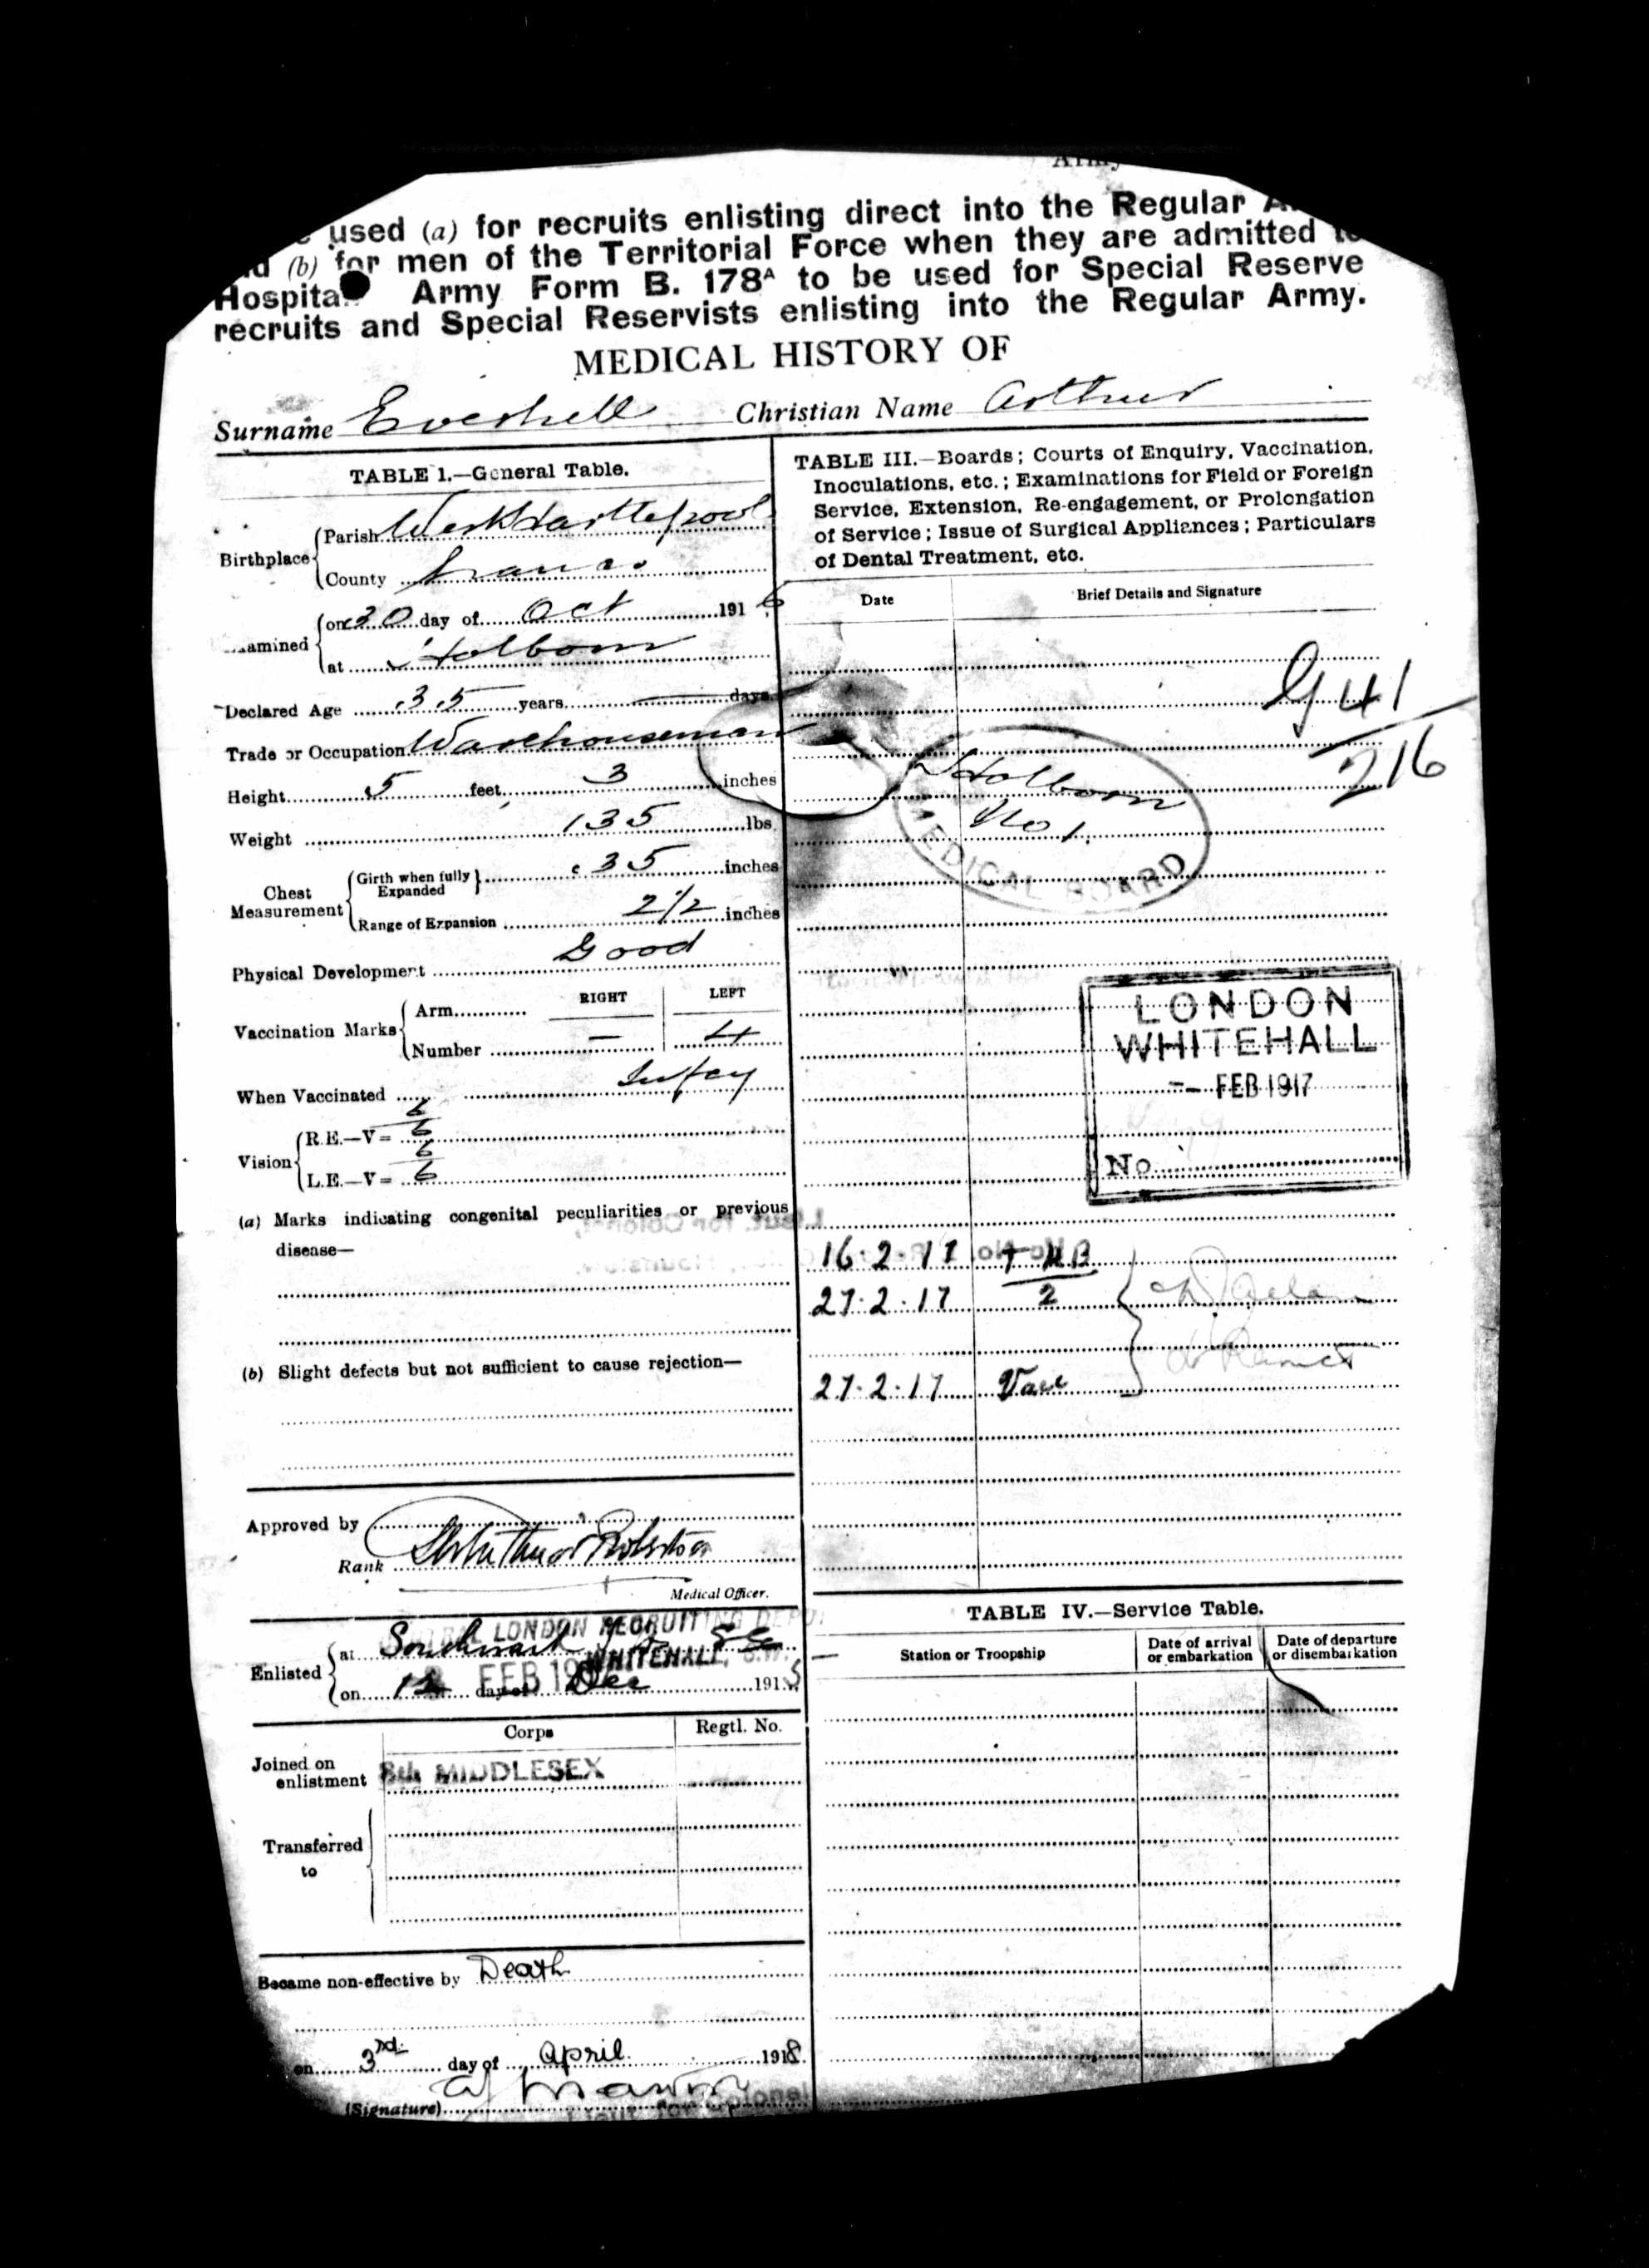 Army
used (a) for recruits enlisting direct into the Regular
(b) for men of the Territorial Force when they are admitted to
Hospital. Army Form B. 178A to be used for Special Reserve
recruits and Special Reservists enlisting into the Regular Army.
MEDICAL HISTORY OF
Surname Evershell Christian Name Arthur
TABLE I.—General Table.
Birthplace
Parish West Hartlepool
County
Examined
on 30 day of Oct 1916
at Holborn
Declared Age 35 years days
Trade or Occupation Warehouseman
Height 5 feet 3 inches
Weight 135 lbs
Chest Measurement
Girth when fully Expanded 35 inches
Range of Expansion 2 1/2 inches
Physical Development Good
RIGHT LEFT
Vaccination Marks
Arm
Number — 4
When Vaccinated Infcy
Vision
R.E.—V= 6/6
L.E.—V= 6/6
(a) Marks indicating congenital peculiarities or previous
disease—
(b) Slight defects but not sufficient to cause rejection—
Approved by
Rank
Medical Officer.
LONDON RECRUITING DEPOT
WHITEHALL, S.W.
Enlisted
at Southwark SE
FEB 19
on 12 day of Dec 1915
Corps Regtl. No.
Joined on
enlistment 8th MIDDLESEX
Transferred
to
Became non-effective by Death
on 3rd day of April 1918
(Signature)
Lieut for Colonel
TABLE III.—Boards; Courts of Enquiry, Vaccination,
Inoculations, etc.; Examinations for Field or Foreign
Service, Extension, Re-engagement, or Prolongation
of Service; Issue of Surgical Appliances; Particulars
of Dental Treatment, etc.
Date Brief Details and Signature
G 41
216
Holborn
No 1.
MEDICAL BOARD
LONDON
WHITEHALL
-- FEB 1917
No
16.2.17
27.2.17 2
27.2.17 Vacc
TABLE IV.—Service Table.
Station or Troopship
Date of arrival
or embarkation
Date of departure
or disembarkation